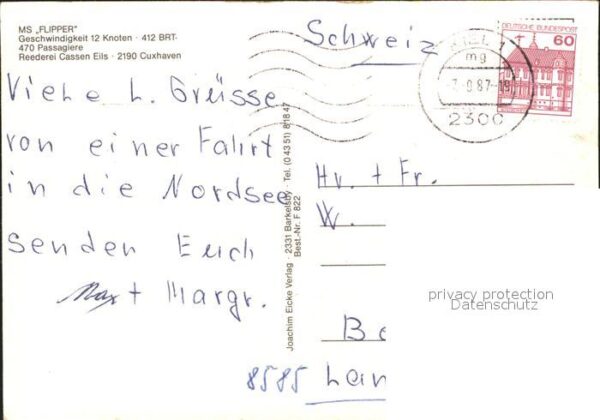 MS „FLIPPER"
Geschwindigkeit 12 Knoten · 412 BRT-
470 Passagiere
Reederei Cassen Eils · 2190 Cuxhaven
Viele l. Grüsse
von einer Fahrt
in die Nordsee
senden Euch
Max + Margr.
Joachim Eicke Verlag · 2331 Barkelsby · Tel. (0 43 51) 8 18 47
Best.-Nr. F 822
Schweiz
KIEL 1
mg
87-19
2300
DEUTSCHE BUNDESPOST
60
Hr. + Fr.
W.
Be
8585 Lan
privacy protection
Datenschutz